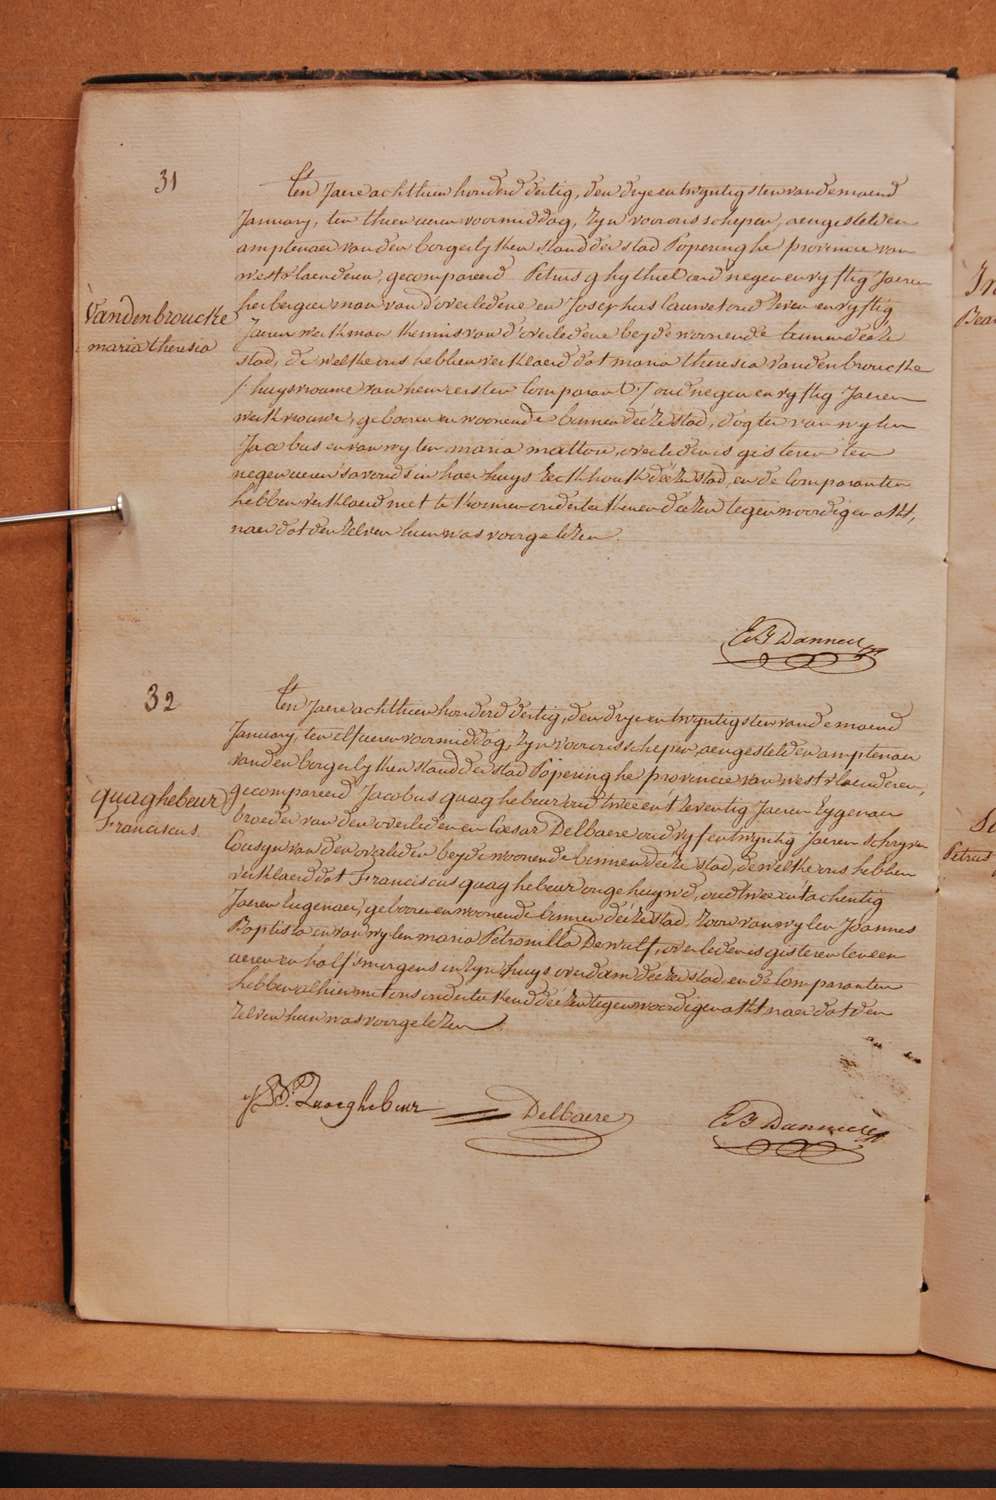 31
Ten Jaere achthien honderd dertig, den drye en twyntigsten van de maend
January, ten thien ueren voormiddag, zyn voor ons schepen, aengestelden
amptenaer van den borgerlyken stand der stad Poperinghe provincie van
westvlaenderen, gecompareerd Petrus ghythiel oud negen en vyftig Jaeren
herbergier man van d'overledene en Josephus lauwet oud zeven en vyftig
Vandenbroucke
maria theresia
Jaeren werkman kennis van d'overledene beyde woonende binnen deéze
stad, de welke ons hebben verklaerd dat maria theresia Vandenbroucke
/: huysvrouwe van den eersten Comparant :/ oud negen en vyftig Jaeren
werkvrouwe, geboren en woonende binnen deéze stad, dogter van wylen
Jacobus en van wylen maria matton, overleden is gisteren ten
negen ueren s'avonds in haer huys Eeckhoutk deéze stad, en de Comparanten
hebben verklaerd niet te konnen onderteekenen deézen tegenwoordigen akt,
naer dat den zelven hun was voorgelezen.
E B Danneel
32
Ten Jaere achthien honderd dertig, den drye en twyntigsten van de maend
January, ten elf ueren voormiddag, zyn voor ons schepen, aengestelden amptenaer
van den borgerlyken stand der stad Poperinghe provincie van westvlaenderen,
quaghebeur
Franciscus
gecompareerd Jacobus quaghebeur oud twee en t'zeventig Jaeren Eygenaer
broeder van den overledenen Caesar Delbaere oud vyf en twyntig Jaeren schryver
Cousyn van den overleden beyde woonende binnen deéze stad, de welke ons hebben
verklaerd dat Franciscus quaghebeur ongehuywd, oud twee en tachentig
Jaeren Eugenaer, geboren en woonende binnen deéze stad, zoon van wylen Joannes
Baptista en van wylen maria Petronilla Dewulf, overleden is gisteren ten een
ueren en half s'morgens in zyn huys overdam deéze stad, en de Comparanten
hebben alhier met ons onderteekend deézen tegenwoordigen akt naer dat den
zelven hun was voorgelezen
J. Quaeghebeur
Delbaere
E B Danneel
Petrus